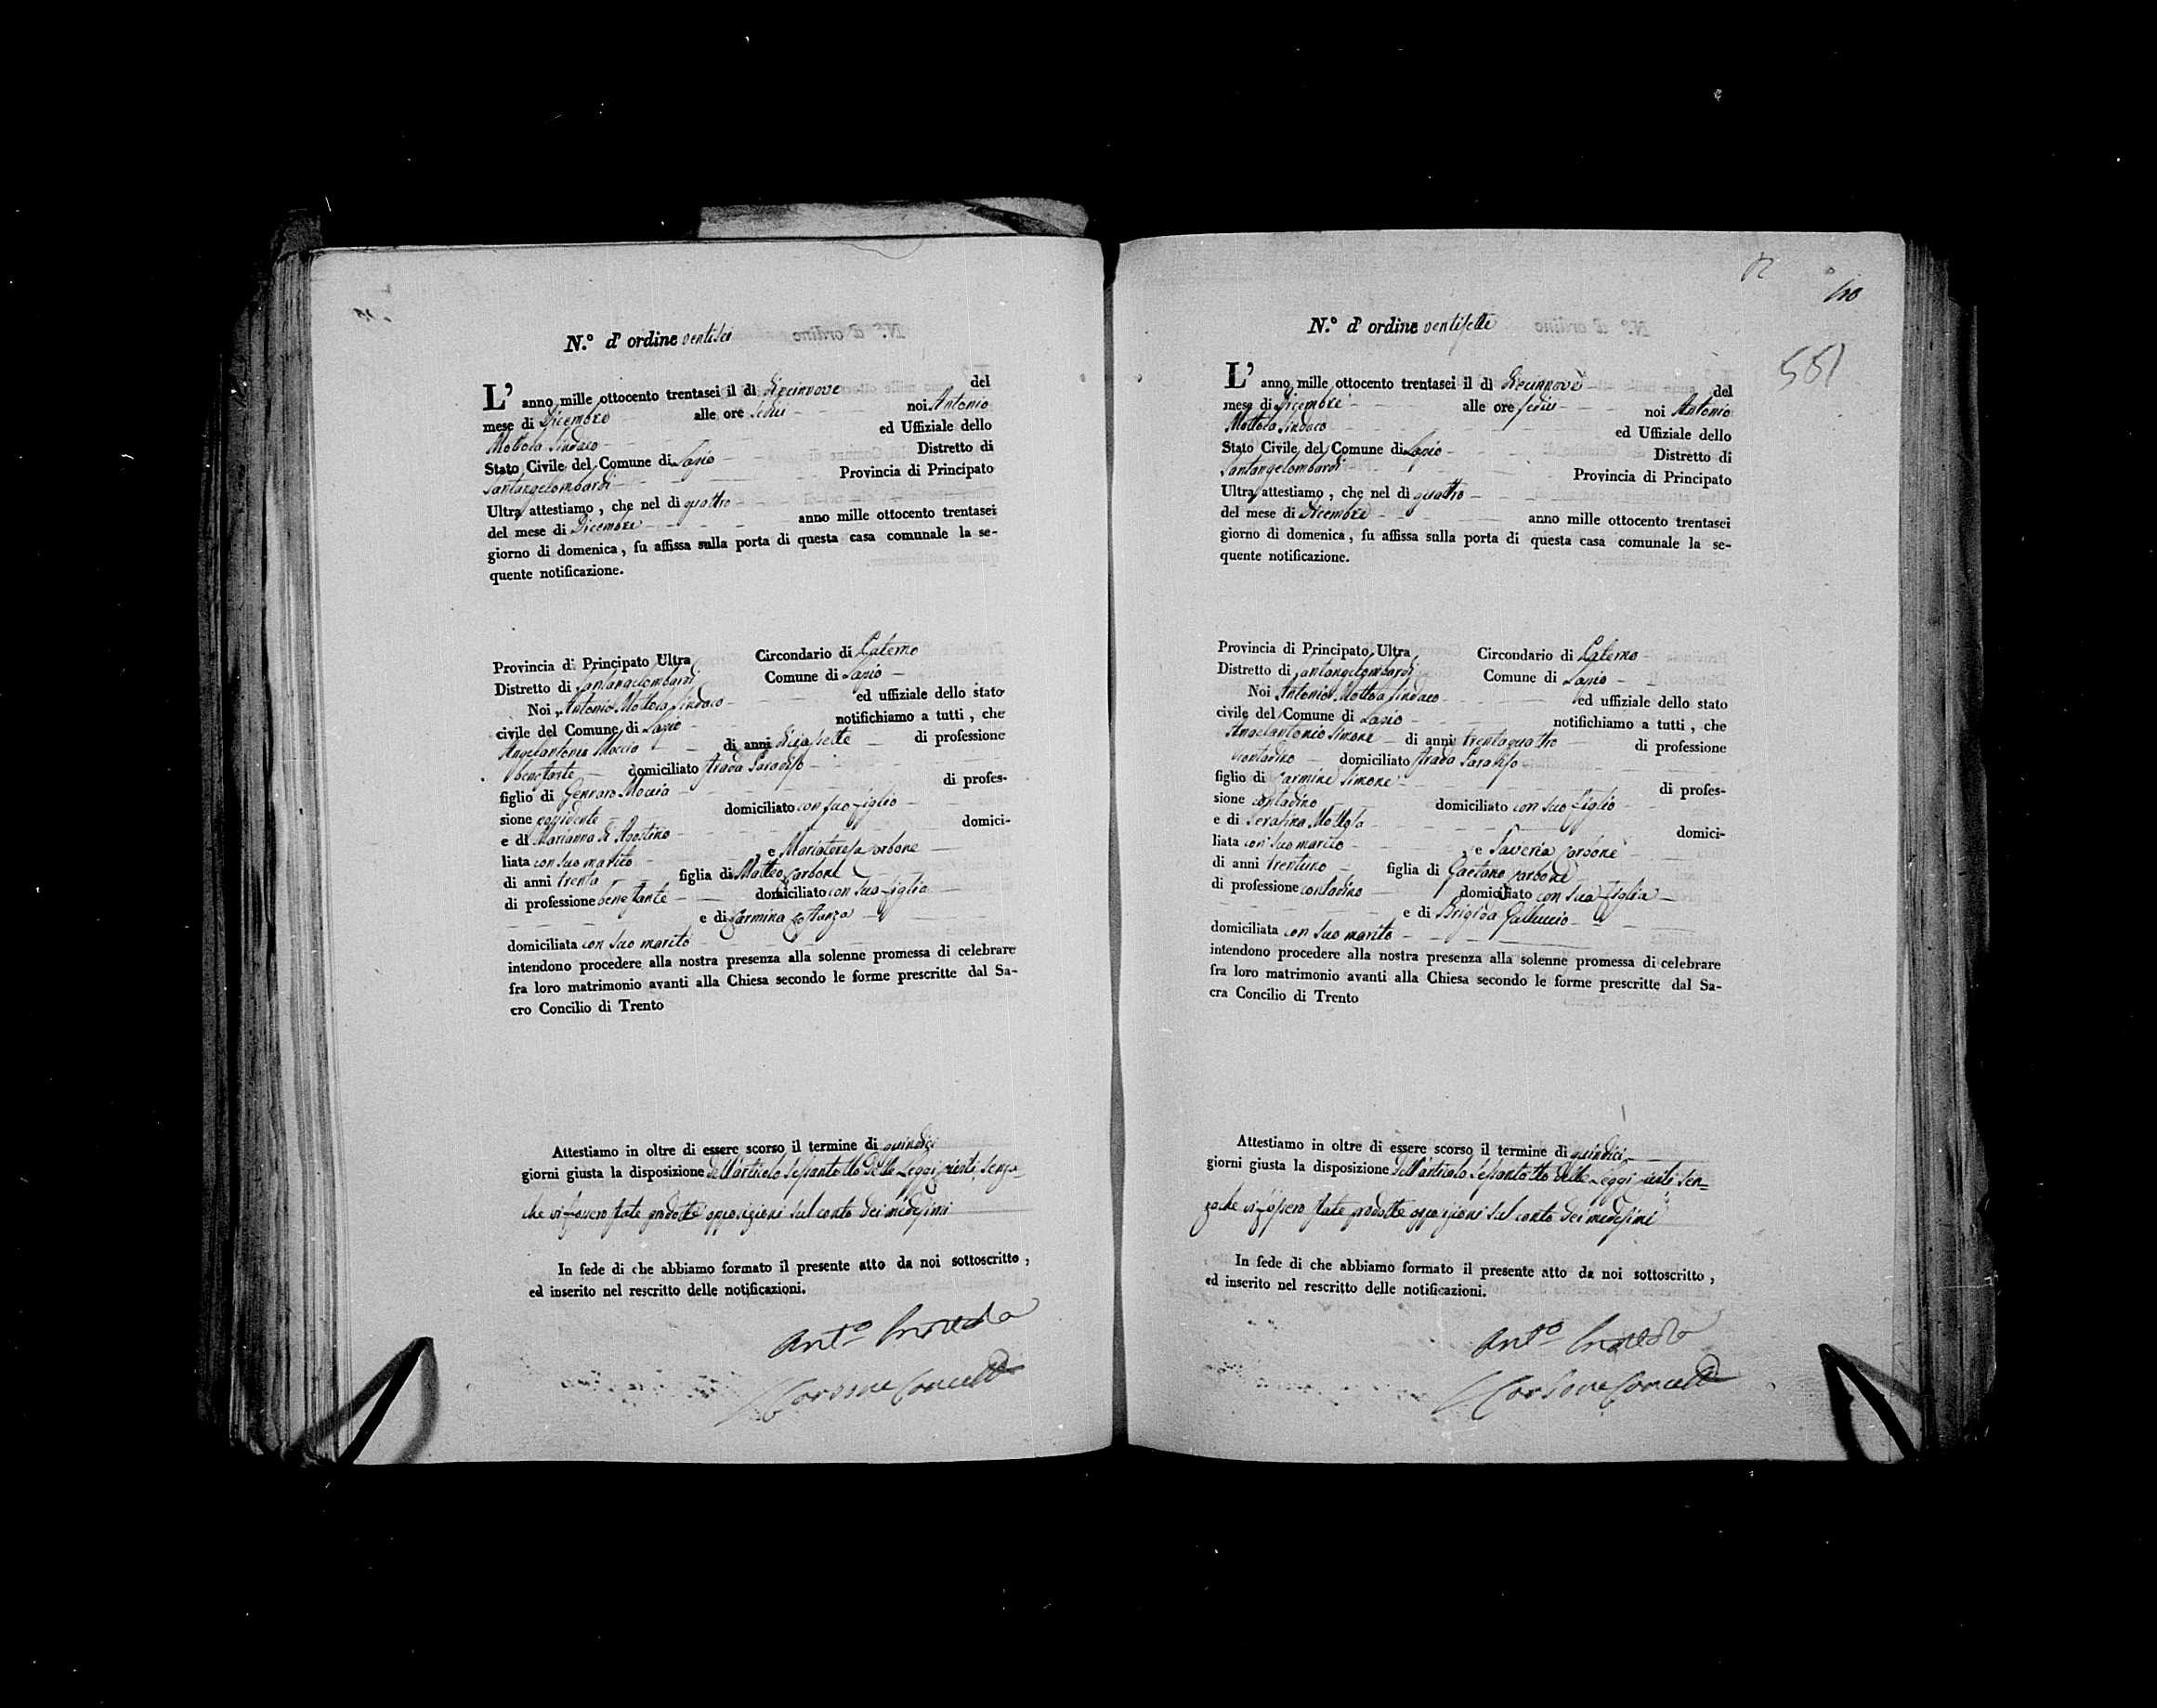 N.º d' ordine ventisei
L' anno mille ottocento trentasei il di diecinnove del
mese di Dicembre alle ore sedici noi Antonio
Mottola Sindaco ed Uffiziale dello
Stato Civile del Comune di Lapio Distretto di
Santangelombardi Provincia di Principato
Ultra attestiamo, che nel di quattro
del mese di Dicembre anno mille ottocento trentasei
giorno di domenica, fu affissa sulla porta di questa casa comunale la se-
quente notificazione.
Provincia di Principato Ultra Circondario di Paterno
Distretto di Santangelombardi Comune di Lapio
Noi Antonio Mottola Sindaco ed uffiziale dello stato
civile del Comune di Lapio notifichiamo a tutti, che
Angelantonio Moccia di anni diciasette di professione
benestante domiciliato strada Paradiso
figlio di Gennaro Moccia di profes-
sione possidente domiciliato con suo figlio
e di Marianna di Agostino domici-
liata con suo marito e Mariateresa Carbone
di anni trenta figlia di Matteo Carbone
di professione benestante domiciliato con sua figlia
e di Carmina Costanza
domiciliata con suo marito
intendono procedere alla nostra presenza alla solenne promessa di celebrare
fra loro matrimonio avanti alla Chiesa secondo le forme prescritte dal Sa-
cro Concilio di Trento
Attestiamo in oltre di essere scorso il termine di quindici
giorni giusta la disposizione dell'articolo sessantotto delle Leggi civili senza
che vi fossero state prodotte opposizioni sul conto dei medesimi
In fede di che abbiamo formato il presente atto da noi sottoscritto,
ed inserito nel rescritto delle notificazioni.
Ant.º
Carbone
40
551
N.º d' ordine ventisette
L' anno mille ottocento trentasei il di diecinnove del
mese di Dicembre alle ore sedici noi Antonio
Mottola Sindaco ed Uffiziale dello
Stato Civile del Comune di Lapio Distretto di
Santangelombardi Provincia di Principato
Ultra attestiamo, che nel di quattro
del mese di Dicembre anno mille ottocento trentasei
giorno di domenica, fu affissa sulla porta di questa casa comunale la se-
quente notificazione.
Provincia di Principato Ultra Circondario di Paterno
Distretto di Santangelombardi Comune di Lapio
Noi Antonio Mottola Sindaco ed uffiziale dello stato
civile del Comune di Lapio notifichiamo a tutti, che
Angelantonio Simone di anni trentaquattro di professione
contadino domiciliato strada Paradiso
figlio di Carmine Simone di profes-
sione contadino domiciliato con suo figlio
e di Serafina Mottola domici-
liata con suo marito e Saveria Carbone
di anni trentuno figlia di Gaetano Carbone
di professione contadino domiciliato con sua figlia
e di Brigida Galluccio
domiciliata con suo marito
intendono procedere alla nostra presenza alla solenne promessa di celebrare
fra loro matrimonio avanti alla Chiesa secondo le forme prescritte dal Sa-
cra Concilio di Trento
Attestiamo in oltre di essere scorso il termine di quindici
giorni giusta la disposizione dell'articolo sessantotto delle Leggi civili sen=
zache vi fossero state prodotte opposizioni sul conto dei medesimi
In fede di che abbiamo formato il presente atto da noi sottoscritto,
ed inserito nel rescritto delle notificazioni.
Ant.º
Carbone